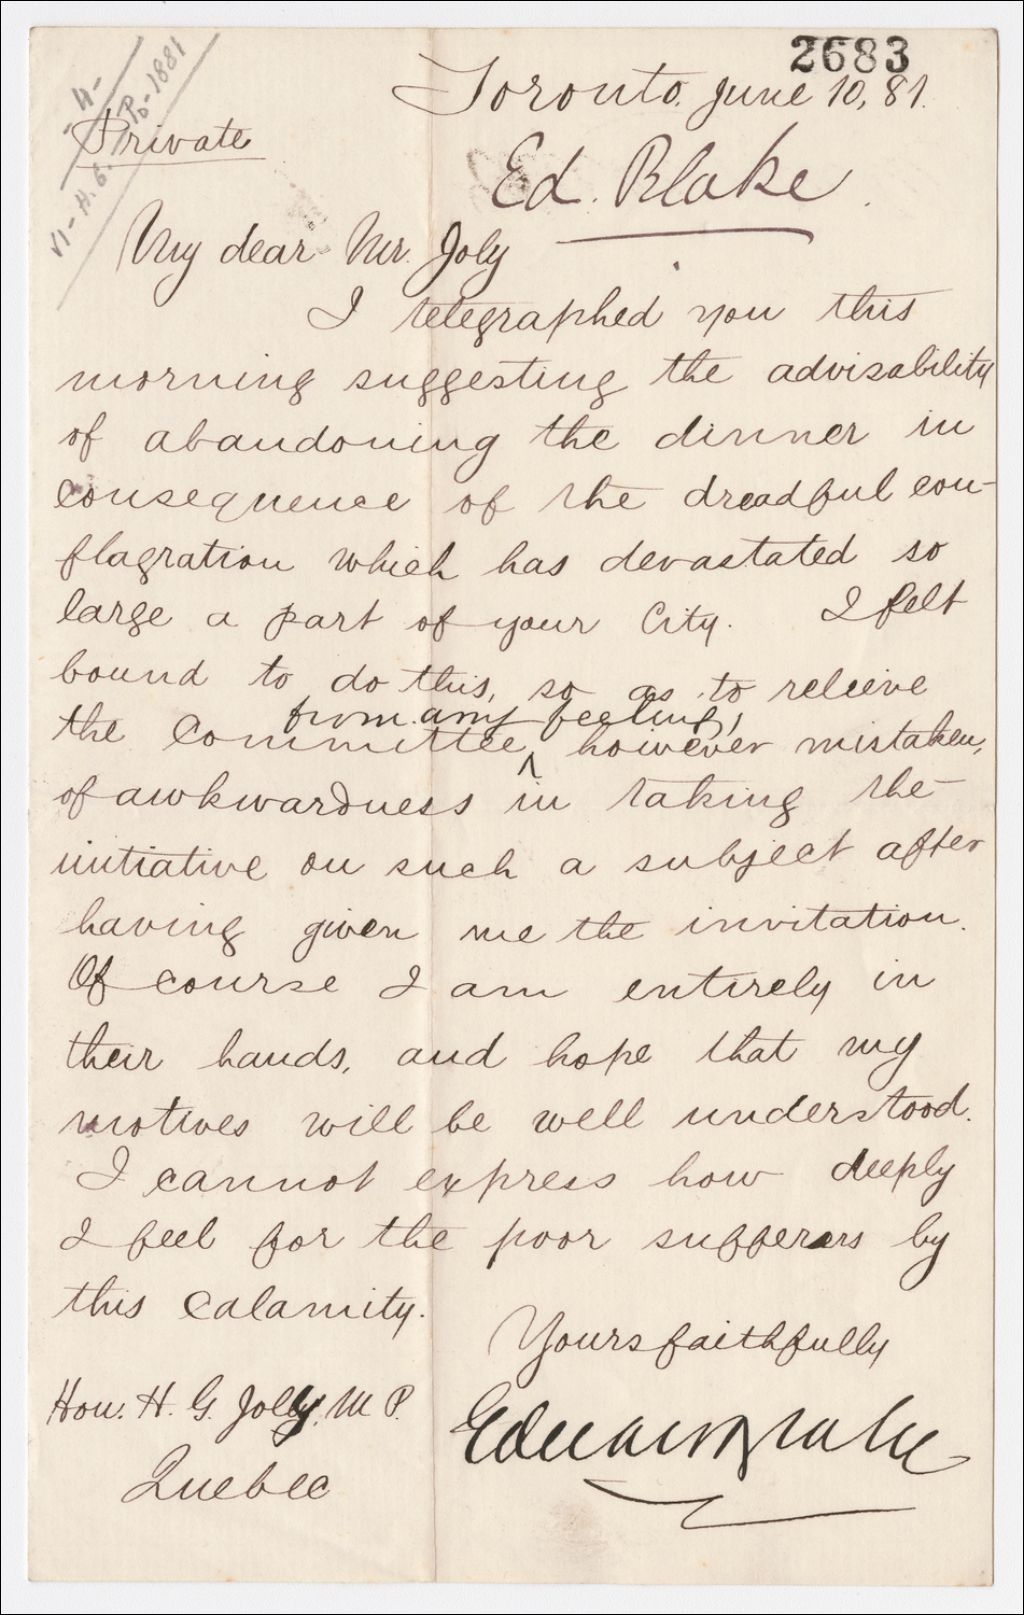 2683
Toronto. June 10, 81.
- 4 -
VI - H. G. - P. - 1881
Private
Ed. Blake.
My dear Mr. Joly
I telegraphed you this
morning suggesting the advisability
of abandoning the dinner in
consequence of the dreadful con-
flagration which has devastated so
large a part of your City. I felt
bound to do this, so as to relieve
from any feeling,
the committee ^ however mistaken,
of awkwardness in taking the
initiative on such a subject after
having given me the invitation.
Of course I am entirely in
their hands, and hope that my
motives will be well understood.
I cannot express how deeply
I feel for the poor sufferers by
this calamity.
Yours faithfully
Edward Blake
Hon. H. G. Jolly. M P.
Quebec